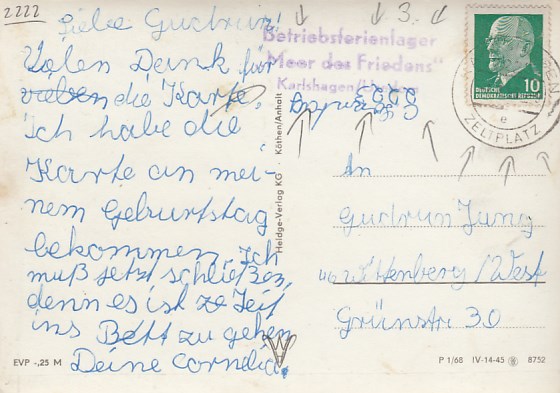 2222
Liebe Gudrun!
Volen Dank für
die Karte.
Ich habe die
Karte an mei-
nem Geburtstag
bekommen. Ich
muß jetzt schließen,
denn es ist Zeit
ins Bett zu gehen
Deine Cornelia.
EVP -,25 M
Heldge-Verlag KG · Köthen/Anhalt
3.
Betriebsferienlager
"Meer des Friedens"
Karlshagen
10
DEUTSCHE
DEMOKRATISCHE REPUBLIK
e
ZELTPLATZ
An
Gudrun Jung
46 Wittenberg/West
Grünstr 30
P 1/68 IV-14-45 8752